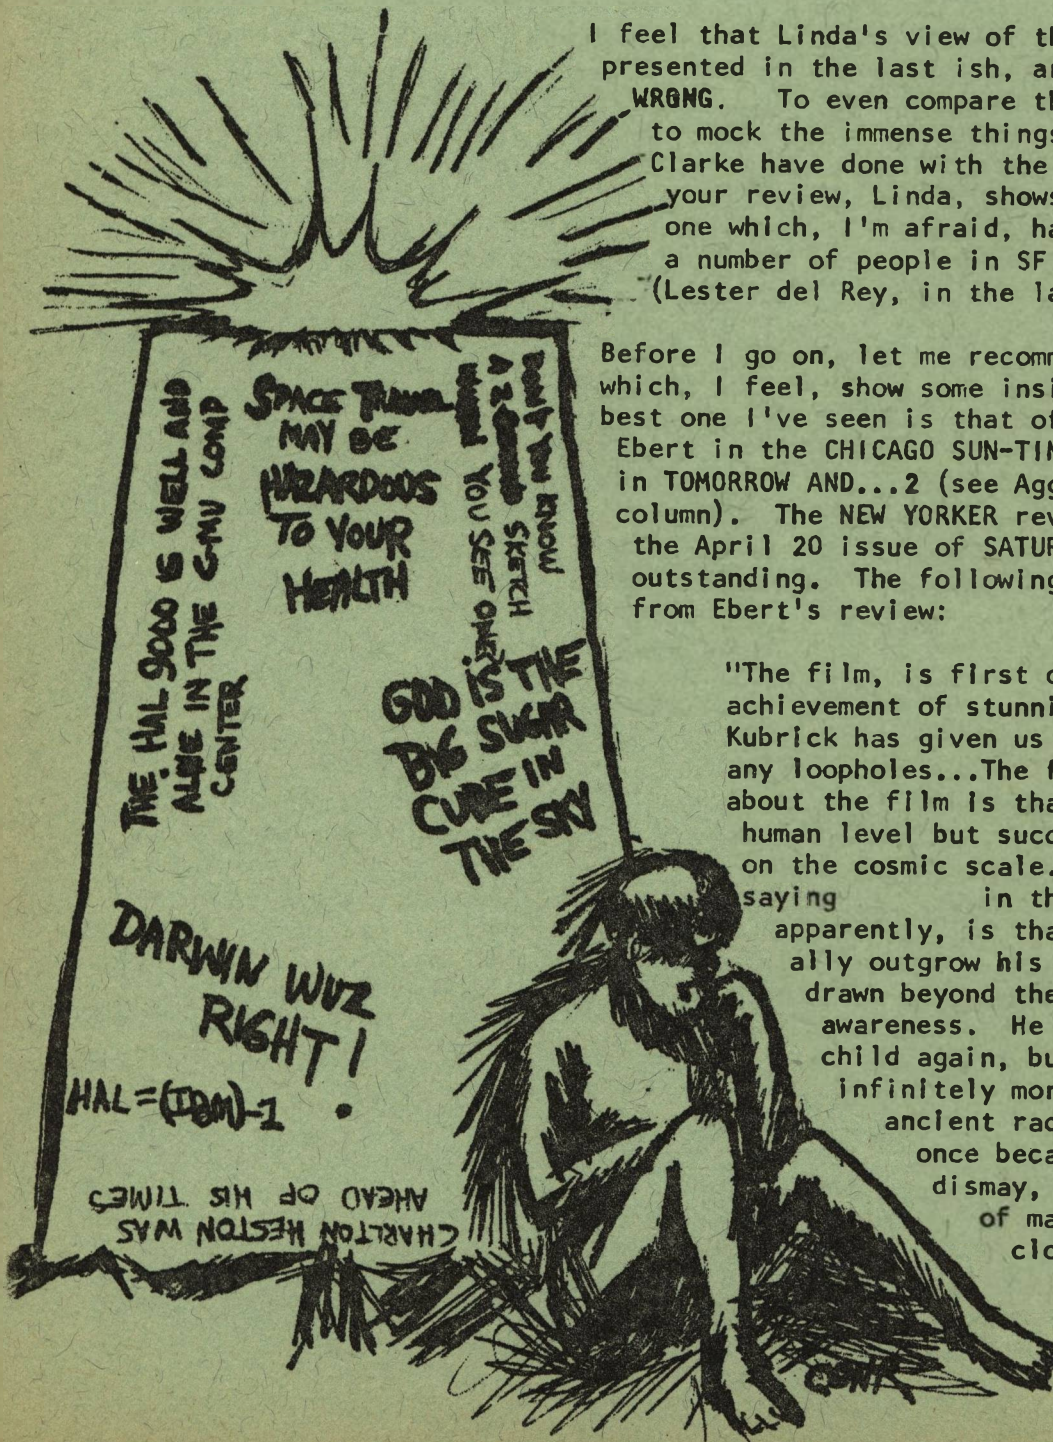 I feel that Linda's view of th
presented in the last ish, an
WRONG. To even compare th
to mock the immense things
Clarke have done with the
your review, Linda, shows
one which, I'm afraid, ha
a number of people in SF
(Lester del Rey, in the la
Before I go on, let me recomm
which, I feel, show some insi
best one I've seen is that of
Ebert in the CHICAGO SUN-TIM
in TOMORROW AND...2 (see Agg
column). The NEW YORKER rev
the April 20 issue of SATUR
outstanding. The following
from Ebert's review:
"The film, is first o
achievement of stunni
Kubrick has given us
any loopholes...The f
about the film is tha
human level but succ
on the cosmic scale.
saying in th
apparently, is tha
ally outgrow his
drawn beyond the
awareness. He
child again, bu
infinitely mor
ancient rac
once beca
dismay,
of ma
clo
THE HAL 9000 IS WELL AND
ALIVE IN THE C-MU COMP
CENTER
SPACE TRAVEL
MAY BE
HAZARDOUS
TO YOUR
HEALTH
DON'T YOU KNOW
A 2 SKETCH
WHEN YOU SEE ONE?
GOD IS THE
BIG SUGAR
CUBE IN
THE SKY
DARWIN WUZ
RIGHT!
HAL=(IBM)-1
CHARLTON HESTON WAS
AHEAD OF HIS TIMES